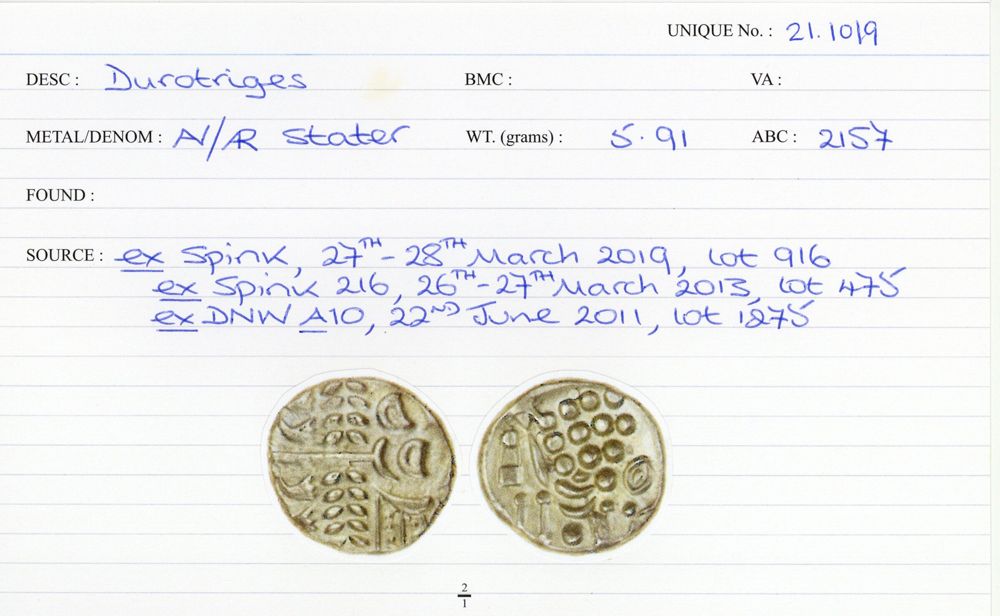 UNIQUE No. : 21.1019
DESC : Durotriges BMC : VA :
METAL/DENOM : AV/AR Stater WT. (grams) : 5.91 ABC : 2157
FOUND :
SOURCE : ex Spink, 27TH - 28TH March 2019, lot 916
ex Spink 216, 26TH - 27TH March 2013, lot 475
ex DNW A10, 22ND June 2011, lot 1275
2
1